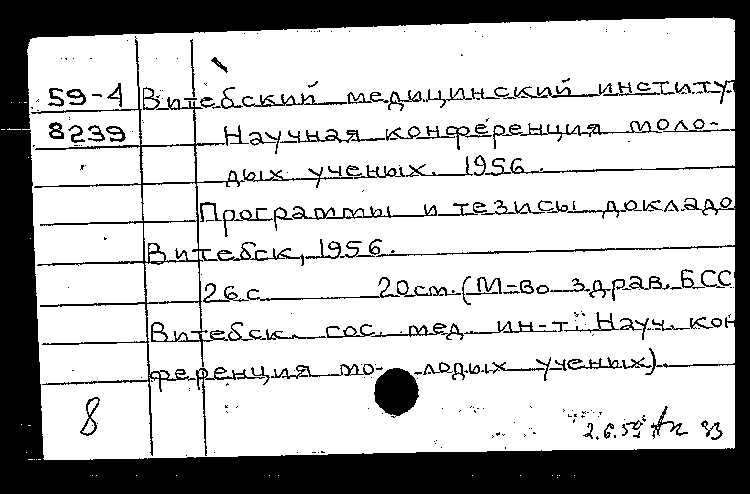 59-4 Витебский медицинский институт
8239 Научная конференция моло-
дых ученых. 1956.
Программы и тезисы докладо
Витебск, 1956.
26 с. 20 см. (М-во здрав. БСС
Витебск. гос. мед. ин-т. Науч. кон
ференция мо- лодых ученых).
8
2.6.59